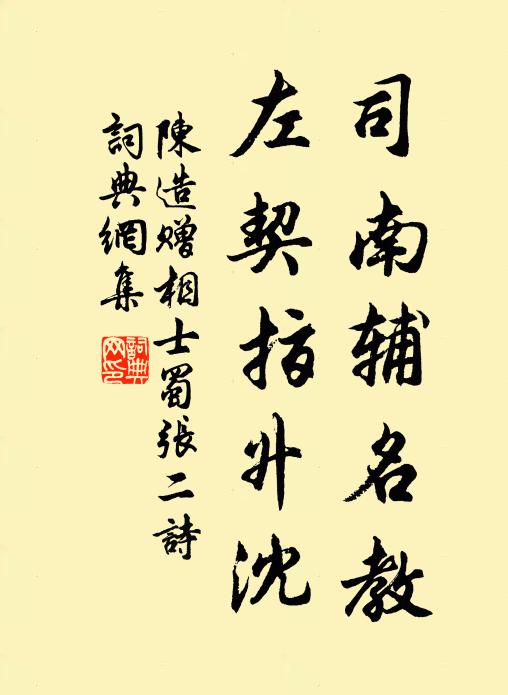 司南辅名教
左契指升沈
陳造贈相士蜀張二詩
詞典網集
詞典网印